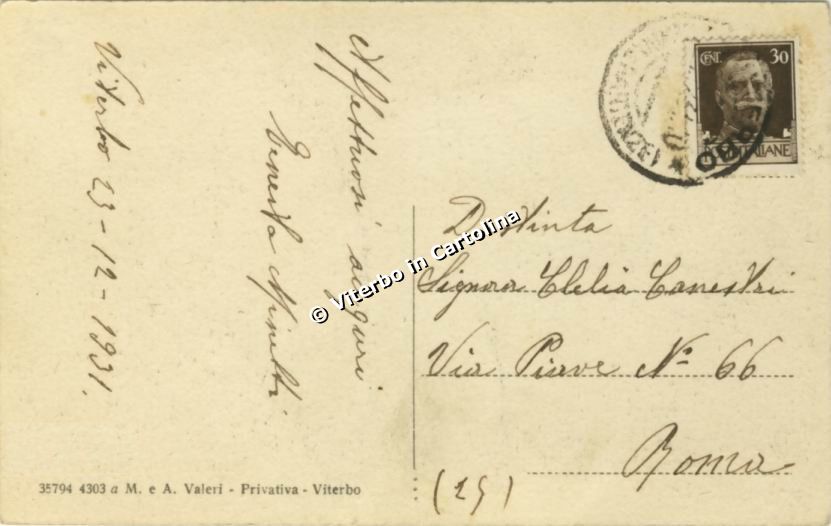 Viterbo 23-12-1931.
Affettuosi auguri
Ernesta
CENT. 30
ITALIANE
Distinta
Signora Clelia Canestri
Via Piave Nº 66
Roma
(25)
35794 4303 a M. e A. Valeri - Privativa - Viterbo
© Viterbo in Cartolina